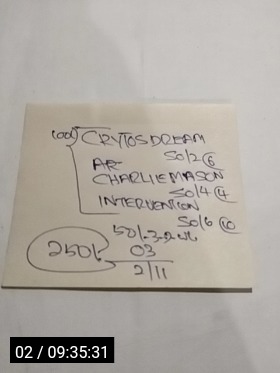 CRYTOSDREAM
50/2 6
AR
CHARLIEMASON
50/4 4
INTERVENTION
50/6 10
250/-
03
2/11
02 / 09:35:31